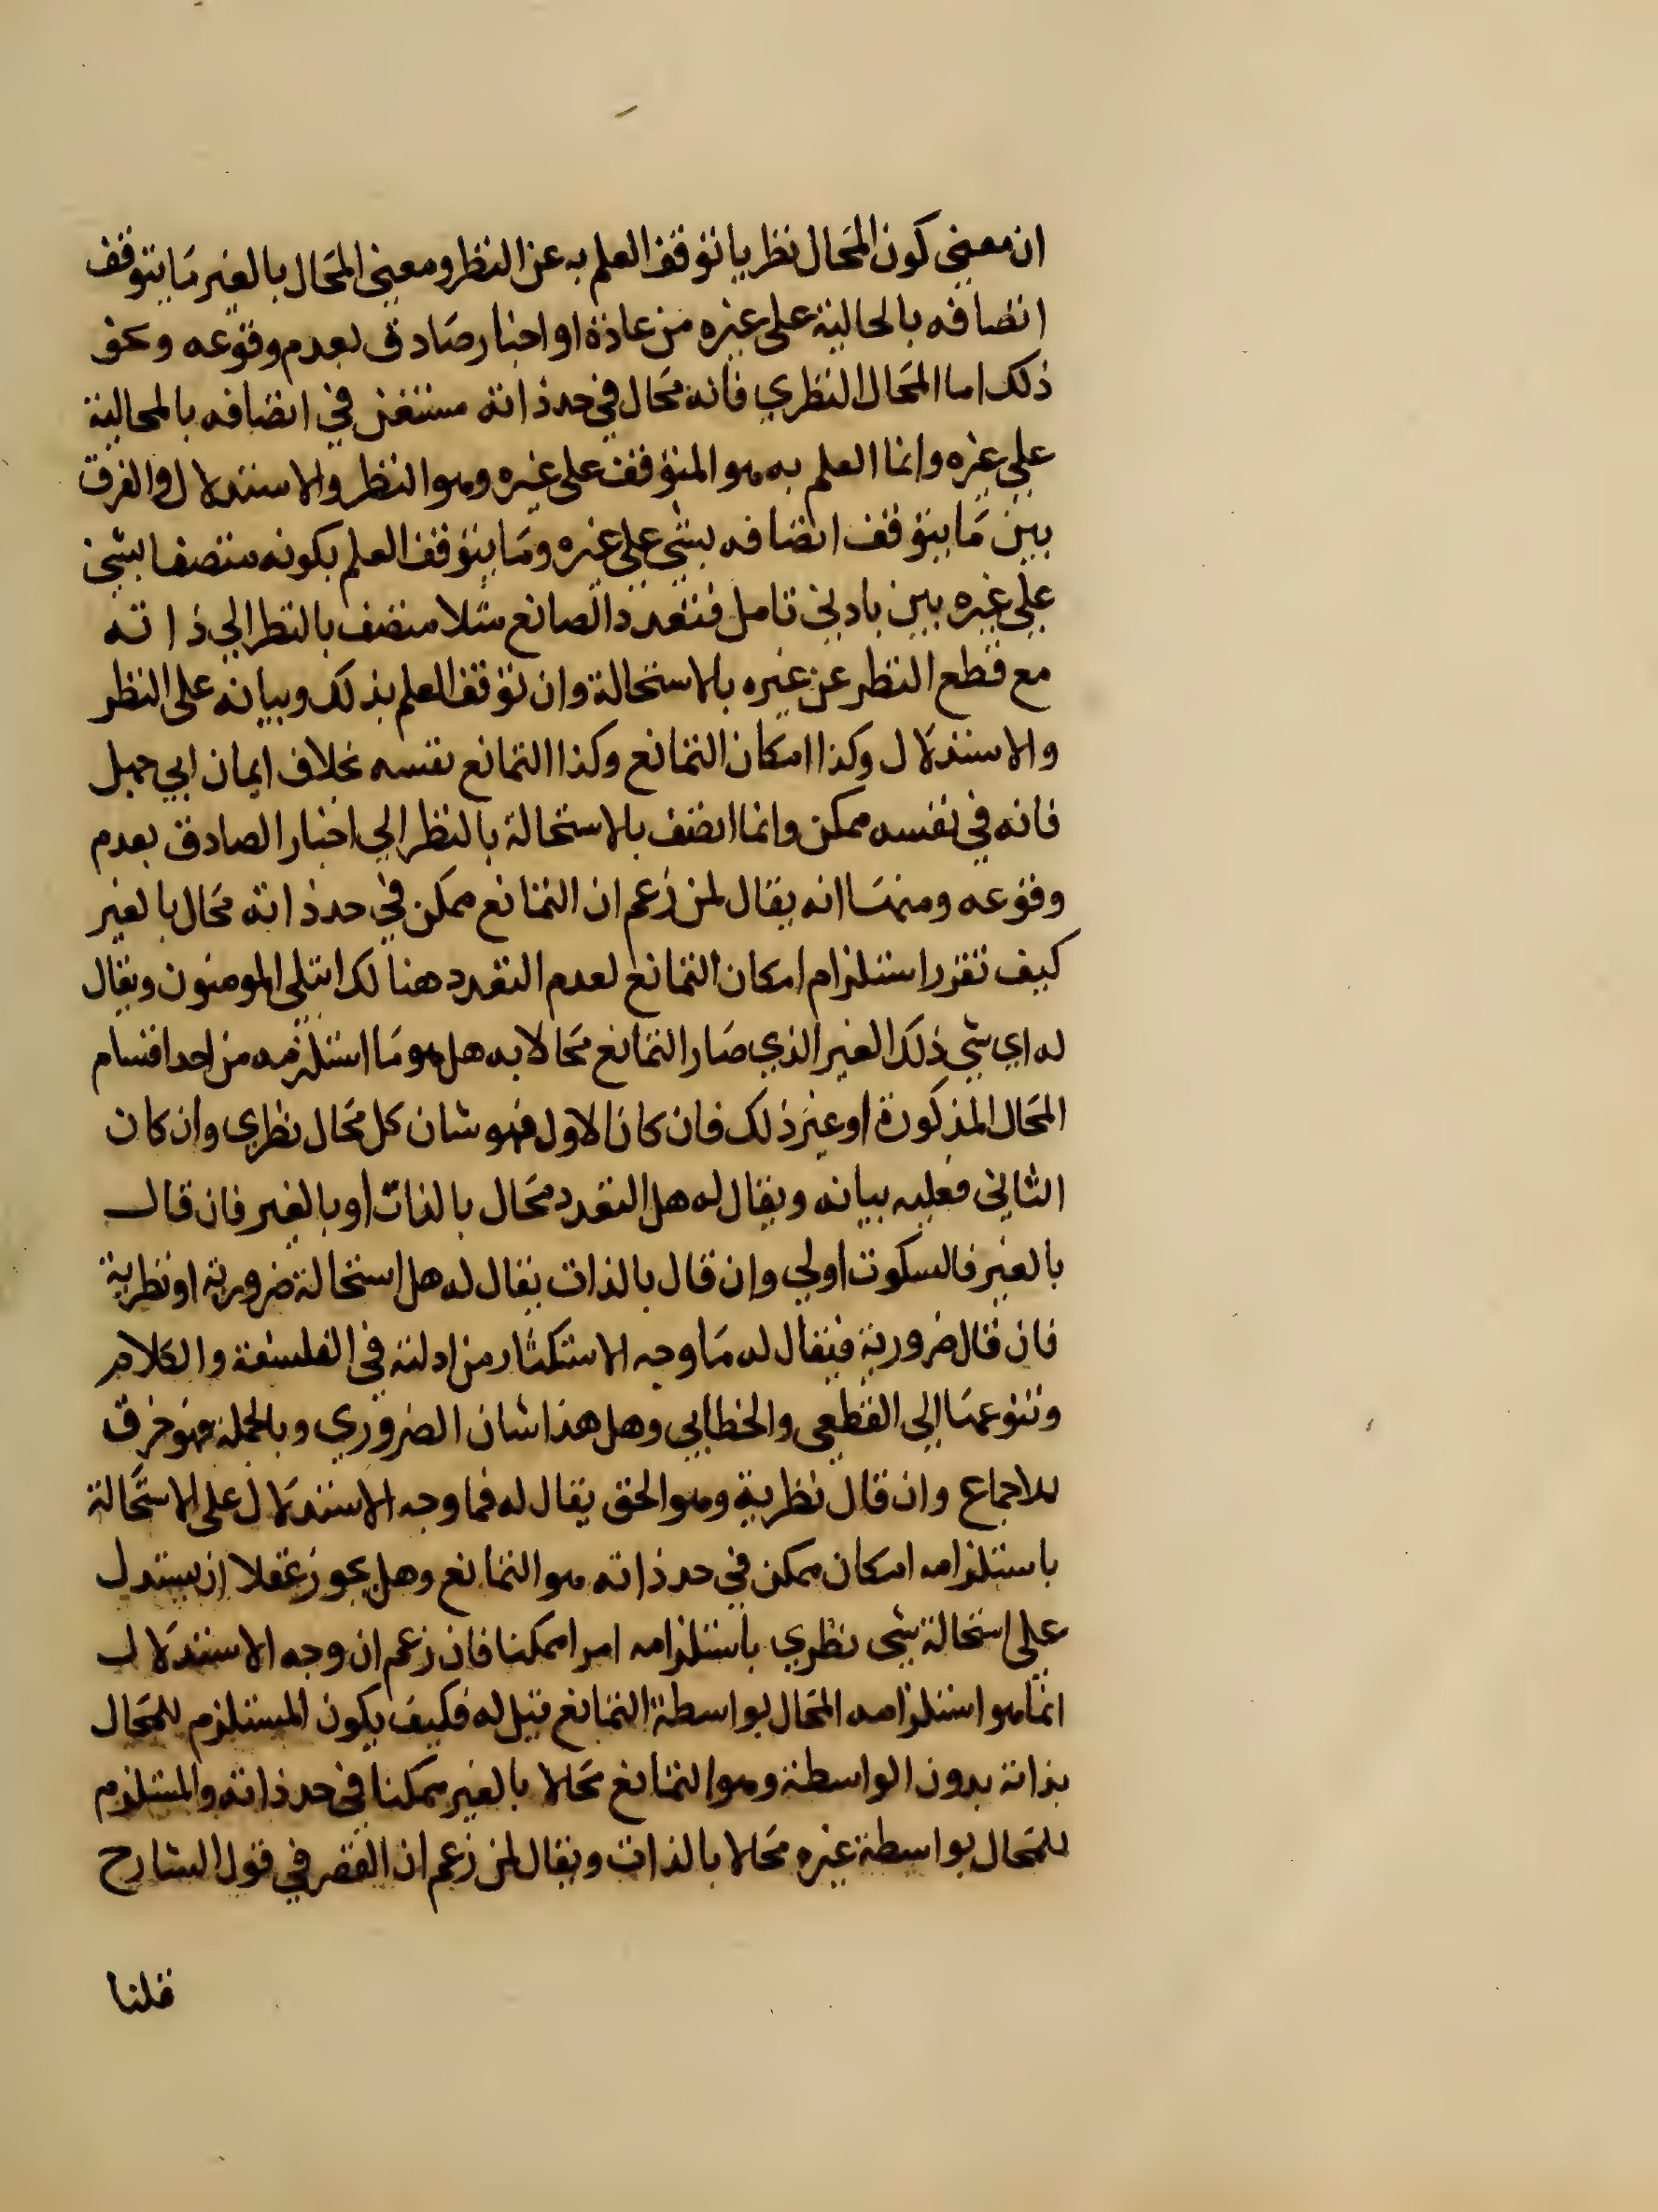 ان معنى كون المحال نظريا توقف العلم به عن النظر ومعنى المحال بالغير ما يتوقف
اتصافه بالحالية على غيره من عادة او اخبار صادق بعدم وقوعه ونحو
ذلك اما المحال النظري فانه محال في حد ذاته مستغن في اتصافه بالمحالية
على غيره وانما العلم به هو المتوقف على غيره وهو النظر والاستدلال والفرق
بين ما يتوقف اتصافه بشي على غيره وما يتوقف العلم بكونه متصفا بشي
على غيره بين بادنى تامل فتعدد الصانع مثلا متصف بالنظر الي ذاته
مع قطع النظر عن غيره بالاستحالة وان توقف العلم بذلك وبيانه على النظر
والاستدلال وكذا امكان التمانع وكذا التمانع نفسه بخلاف ايمان ابي جهل
فانه في نفسه ممكن وانما اتصف بالاستحالة بالنظر الي اخبار الصادق بعدم
وقوعه ومنها انه يقال لمن زعم ان التمانع ممكن في حد ذاته محال بالغير
كيف تقرر استلزام امكان التمانع لعدم التعدد هنالك ابتلى المومنون ويقال
له اي شي ذلك الغير الذي صار التمانع محالا به هل هو ما استلزمه من احد اقسام
المحال المذكورة او غير ذلك فان كان الاول فهو شان كل محال نظري وان كان
الثاني فعليه بيانه ويقال له هل التعدد محال بالذات او بالغير فان قال
بالغير فالسكوت اولي وان قال بالذات يقال له هل استحالة ضرورية او نظرية
فان قال ضرورية فيقال له ما وجه الاستكثار من ادلته في الفلسفة والكلام
وتنوعها الي القطعي والخطابي وهل هذا شان الضروري وبالجملة فهو خرق
للاجماع وان قال نظرية وهو الحق يقال له فما وجه الاستدلال على الاستحالة
باستلزامه امكان ممكن في حد ذاته هو التمانع وهل يجوز عقلا ان يستدل
على استحالة شي نظري باستلزامه امرا ممكنا فان زعم ان وجه الاستدلال
انما هو استلزامه المحال بواسطة التمانع قيل له فكيف يكون المستلزم للمحال
بذاته بدون الواسطة وهو التمانع محالا بالغير ممكنا في حد ذاته والمستلزم
للمحال بواسطة غيره محالا بالذات ويقال لمن زعم ان القصر في قول الشارح
قلنا